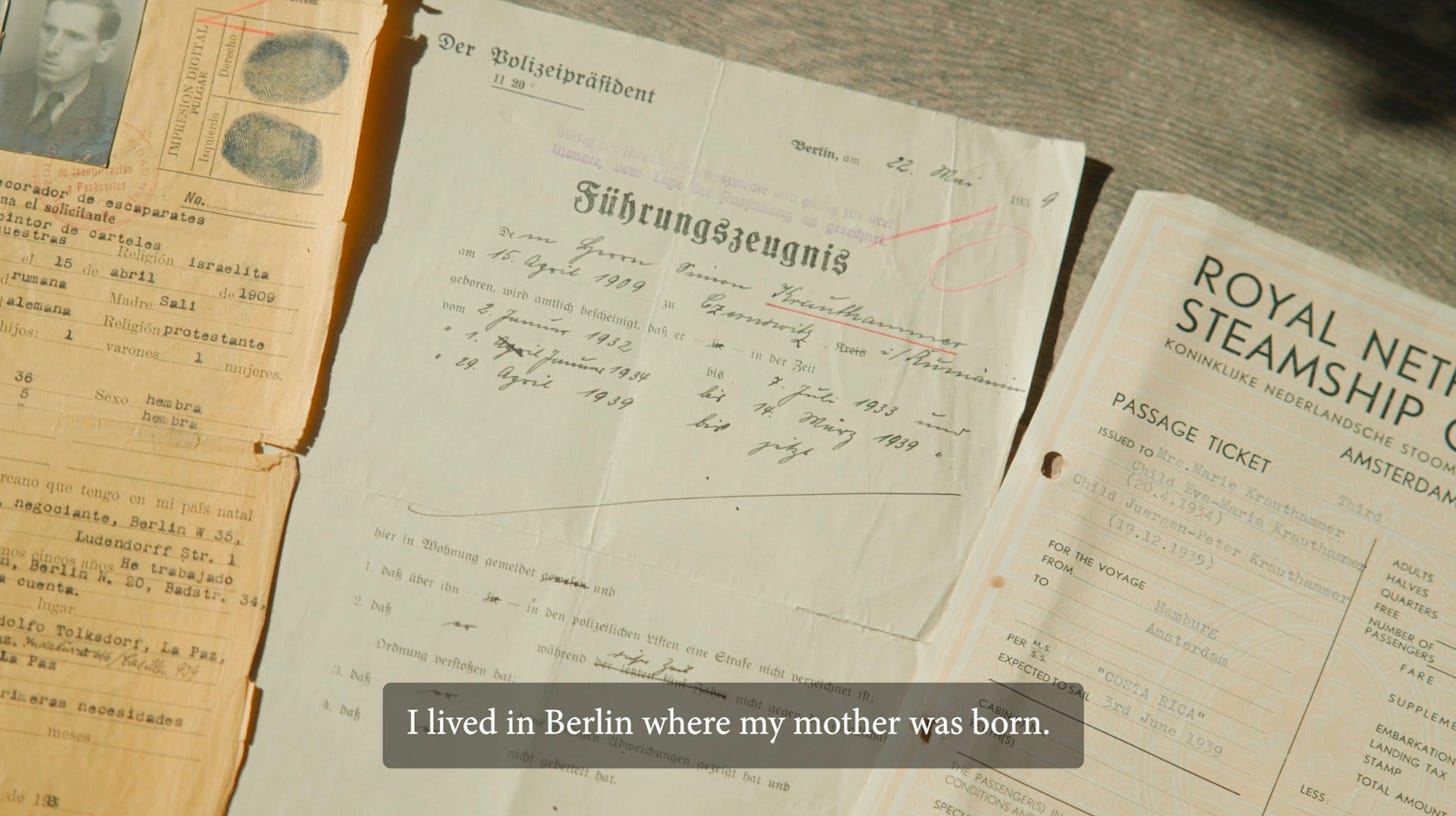 IMPRESION DIGITAL
PULGAR
Derecho
Izquierdo
No.
de Identificación
y Pasaportes
ecorador de escaparates
na el solicitante
pintor de carteles
uestras Religión israelita
el 15 de abril de 1909
rumana Madre Sali
alemana Religión protestante
hijos: 1 varones 1 mujeres.
36
5 Sexo hembra
hembra
rcano que tengo en mi país natal
negociante, Berlin W 35,
Ludendorff Str. 1
nos cincos años He trabajado
n, Berlin N. 20, Badstr. 34,
a cuenta.
Lugar
dolfo Tolksdorf, La Paz,
La Paz
rimeras necesidades
meses
de 193
Der Polizeipräsident
II 20
Berlin, am 22. Mai 1939
Führungszeugnis
Dem Herrn Simon Krauthammer
am 15. April 1909 zu Czernowitz Kreis i/Rumänien
geboren, wird amtlich bescheinigt, daß er sie in der Zeit
vom 2. Januar 1932 bis 7. Juli 1933 und
" 1. April Januar 1934 bis 14. März 1939 "
" 29. April 1939 bis jetzt
hier in Wohnung gemeldet gewesen und
1. daß über ihn sie in den polizeilichen Listen eine Strafe nicht verzeichnet ist;
2. daß er während der letzten fünf Jahre nicht
Ordnung verstoßen hat;
3. daß Abweichungen gezeigt hat und
4. daß nicht gebettelt hat.
ROYAL NETH
STEAMSHIP C
KONINKLIJKE NEDERLANDSCHE STOOM
AMSTERDAM
PASSAGE TICKET
Third
ISSUED TO Mrs. Marie Krauthammer
Child Eva-Maria Krauthammer
(20.4.1934)
Child Juergen-Peter Krauthammer
(19.12.1935)
FOR THE VOYAGE
FROM Hamburg
TO Amsterdam
PER M.S. S.S. "COSTA RICA"
EXPECTED TO SAIL 3rd June 1939
THE PASSENGER(S) IN
CONDITIONS AN
ADULTS
HALVES
QUARTERS
FREE
NUMBER OF
PASSENGERS
FARE
SUPPLEME
EMBARKATION
LANDING TAX
STAMP
TOTAL AMOUNT
LESS:
I lived in Berlin where my mother was born.